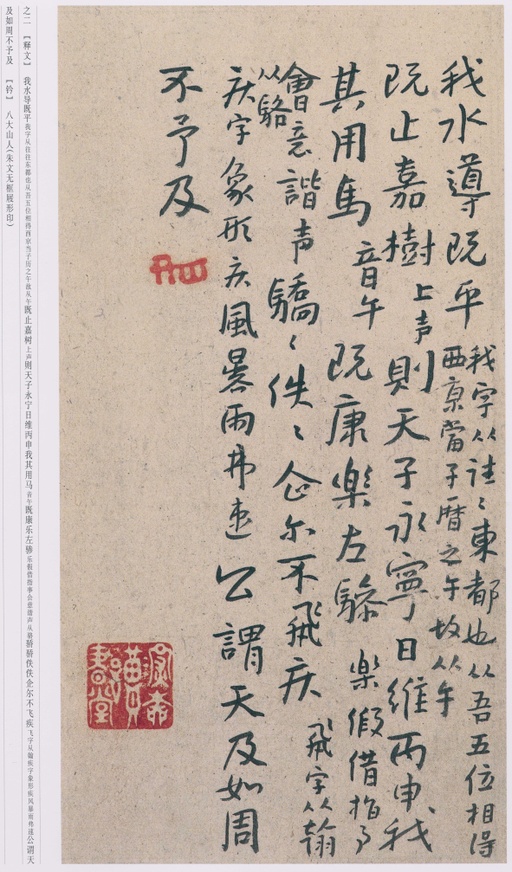 我水導既平
我字从往〻東都也从吾五位相得
西京當子曆之午故从午
既止嘉樹上声則天子永寧日維丙申我
其用馬音午既康樂左驂樂假借指事
會意諧声从駱驕〻佚〻企尔不飛疾飛字从翰
疾字象形疾風暴雨弗速公謂天及如周
不予及
之二 【释文】 我水导既平我字从往往东都也从吾五位相得西京当子历之午故从午既止嘉树上声则天子永宁日维丙申我其用马音午既康乐左骖乐假借指事会意谐声从骆骄骄佚佚企尔不飞疾飞字从翰疾字象形疾风暴雨弗速公谓天
及如周不予及 【钤】 八大山人（朱文无框屐形印）